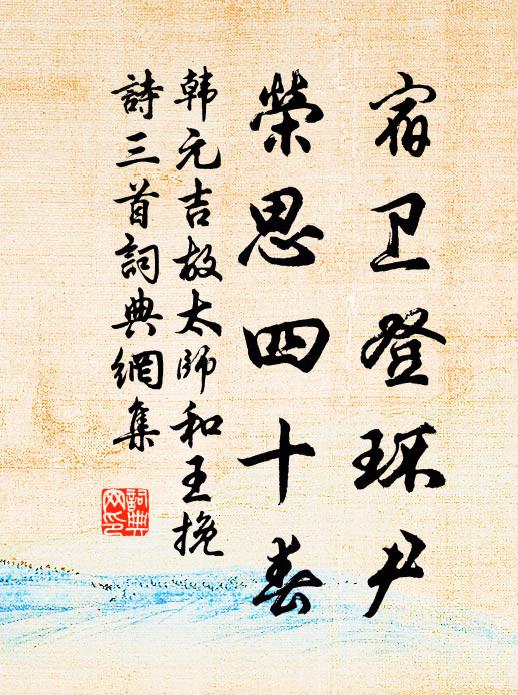 宿卫登环尹
荣思四十春
韩元吉故太师和王挽
詩三首詞典網集
詞典网印